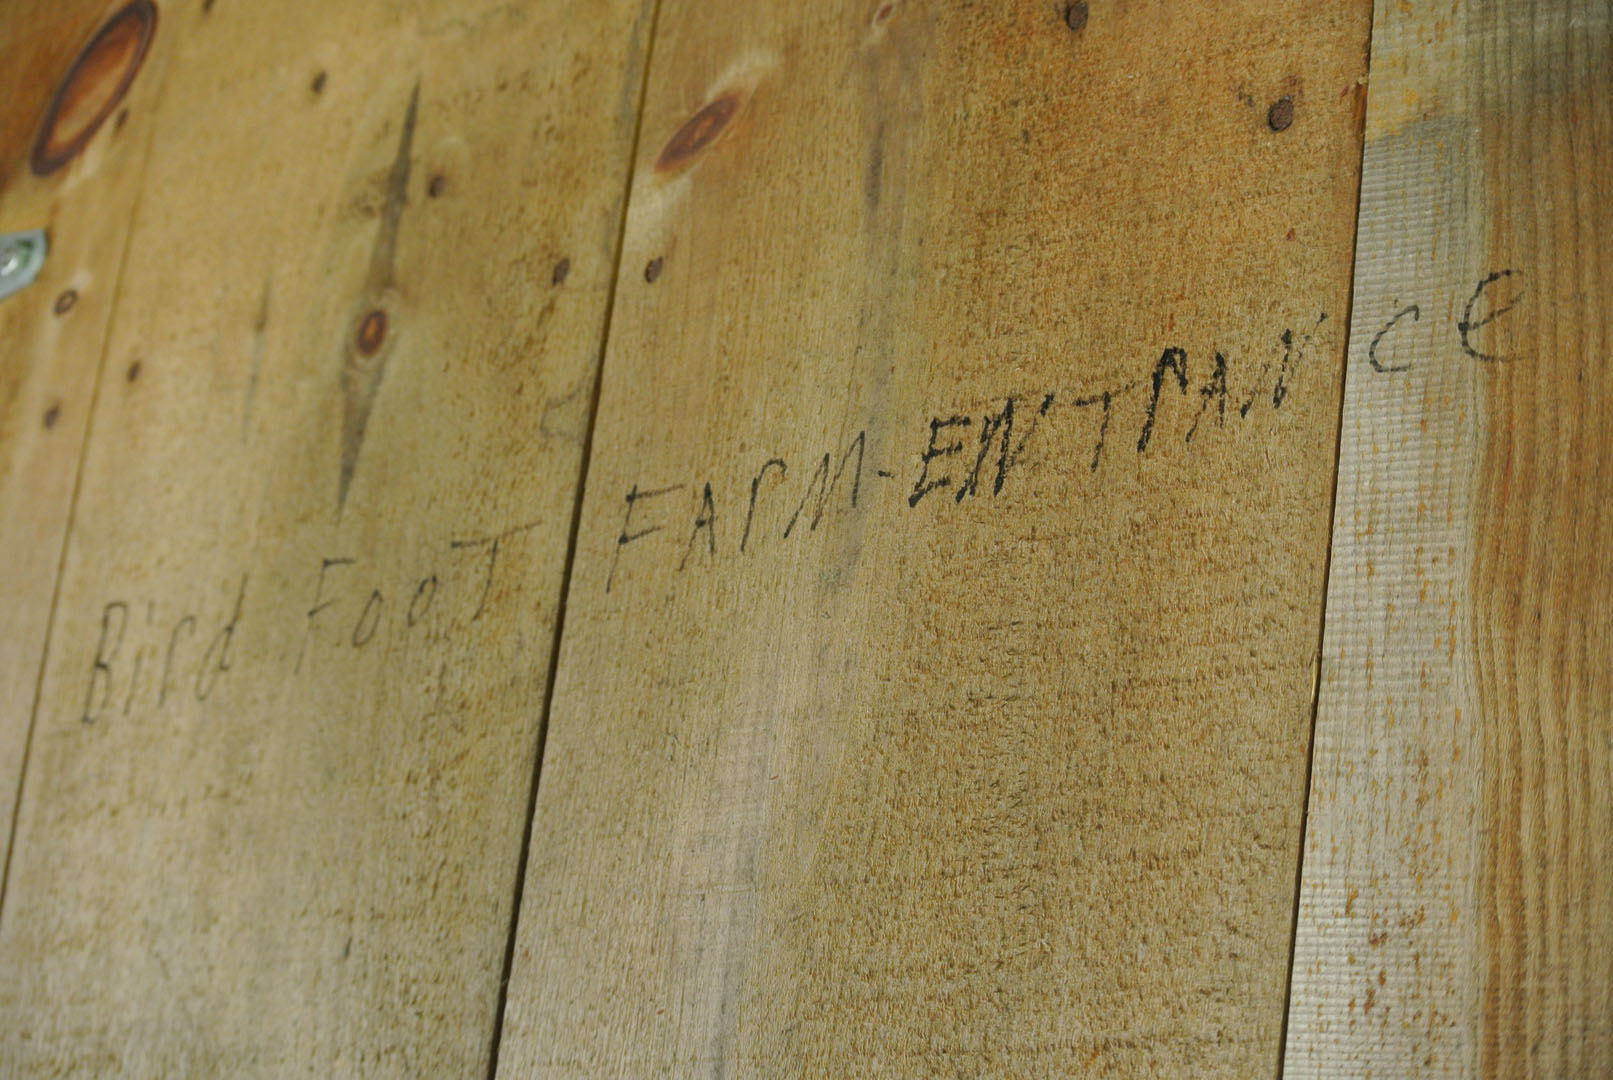 Bird FOOT FARM-ENTRANCE